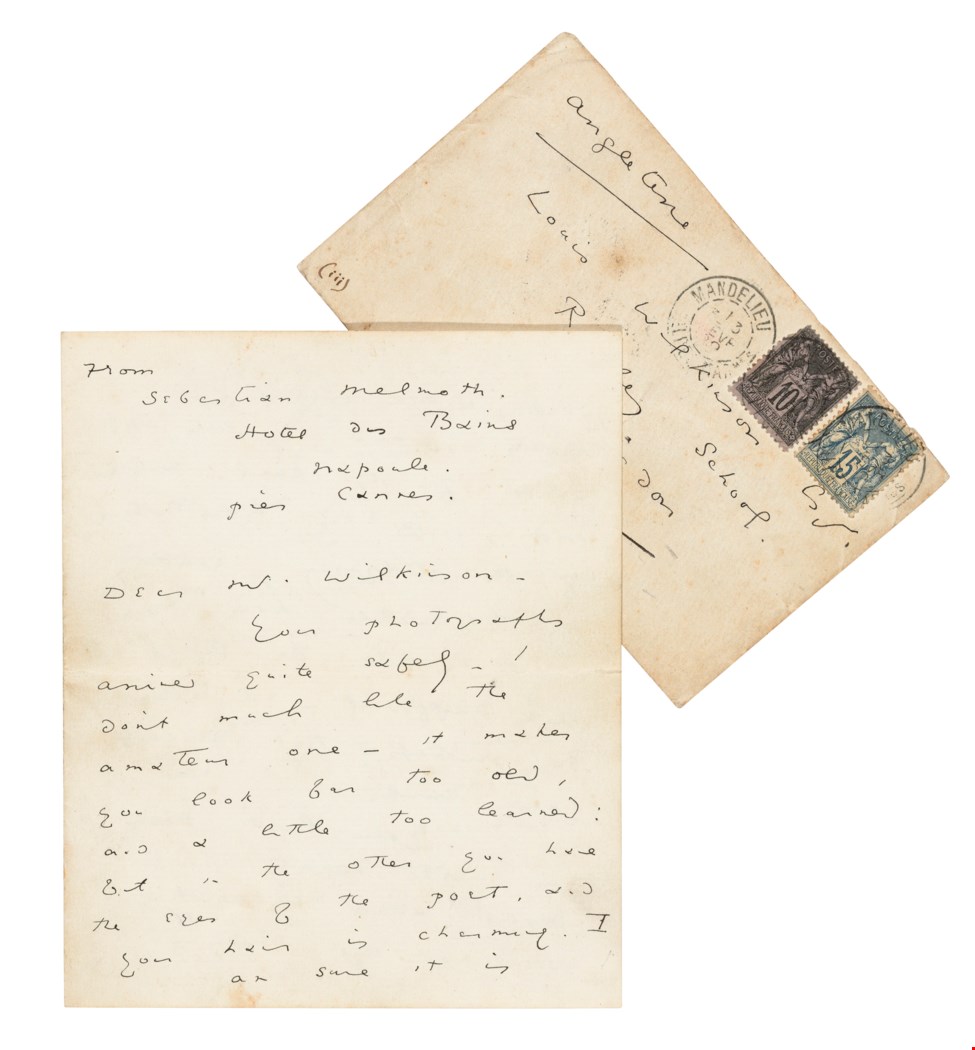 From
Sebastian Melmoth.
Hotel des Bains
Napoule.
près Cannes.
Dear Mr. Wilkinson –
Your photographs
arrived quite safely – I
don't much like the
amateur one – it makes
you look far too old,
and a little too learned:
but in the other you have
the eyes of the poet, and
your hair is charming. I
am sure it is
Angleterre
Louis Wilkinson Esq.
School.
(iii)
MANDELIEU
13
10
15